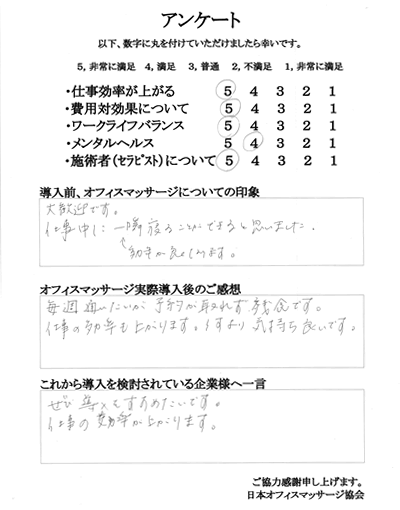 アンケート
以下、数字に丸を付けていただけましたら幸いです。
5, 非常に満足 4, 満足 3, 普通 2, 不満足 1, 非常に満足
・仕事効率が上がる 5 4 3 2 1
・費用対効果について 5 4 3 2 1
・ワークライフバランス 5 4 3 2 1
・メンタルヘルス 5 4 3 2 1
・施術者(セラピスト)について 5 4 3 2 1
導入前、オフィスマッサージについての印象
大歓迎です。
仕事中に一瞬寝ることができると思いました。
↑効率が良くなります。
オフィスマッサージ実際導入後のご感想
毎週通いたいが予約が取れず残念です。
仕事の効率も上がります。 気持ち良いです。
これから導入を検討されている企業様へ一言
ぜひ導入をすすめたいです。
仕事の効率が上がります。
ご協力感謝申し上げます。
日本オフィスマッサージ協会